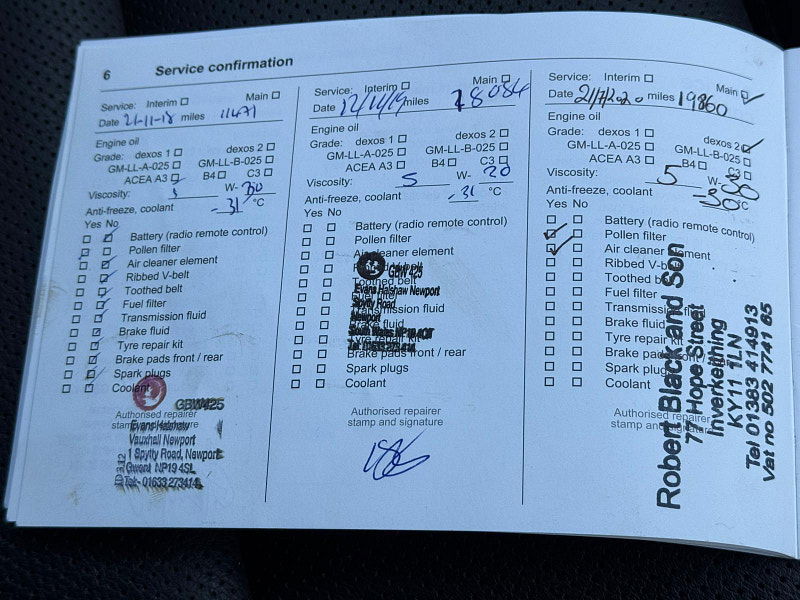 6 Service confirmation
Service: Interim Main
Date 21-11-18 miles 11471
Engine oil
Grade: dexos 1 dexos 2
GM-LL-A-025 GM-LL-B-025
ACEA A3 B4 C3
Viscosity: 5 W- 30
Anti-freeze, coolant -31 °C
Yes No
Battery (radio remote control)
Pollen filter
Air cleaner element
Ribbed V-belt
Toothed belt
Fuel filter
Transmission fluid
Brake fluid
Tyre repair kit
Brake pads front / rear
Spark plugs
Coolant
GBW425
Authorised repairer
stamp
Evans Halshaw
Vauxhall Newport
1 Spytty Road, Newport
Gwent NP19 4SL
Tel:- 01633 273414
Service: Interim Main
Date 12/11/19 miles 18084
Engine oil
Grade: dexos 1 dexos 2
GM-LL-A-025 GM-LL-B-025
ACEA A3 B4 C3
Viscosity: 5 W- 20
Anti-freeze, coolant -31 °C
Yes No
Battery (radio remote control)
Pollen filter
Air cleaner element
Toothed belt
Transmission fluid
Brake fluid
Tyre repair kit
Brake pads front / rear
Spark plugs
Coolant
GBW425
Evans Halshaw Newport
Spytty Road
Newport
Authorised repairer
stamp and signature
Service: Interim Main
Date 21/7/2020 miles 19860
Engine oil
Grade: dexos 1 dexos 2
GM-LL-A-025 GM-LL-B-025
ACEA A3 B4 C3
Viscosity: 5 W- 30
Anti-freeze, coolant -30 °C
Yes No
Battery (radio remote control)
Pollen filter
Air cleaner element
Ribbed V-belt
Toothed belt
Fuel filter
Transmission fluid
Brake fluid
Tyre repair kit
Brake pads front / rear
Spark plugs
Coolant
Authorised repairer
stamp and signature
Robert Black and Son
77 Hope Street
Inverkeithing
KY11 1LN
Tel 01383 414913
Vat no 502 7741 65